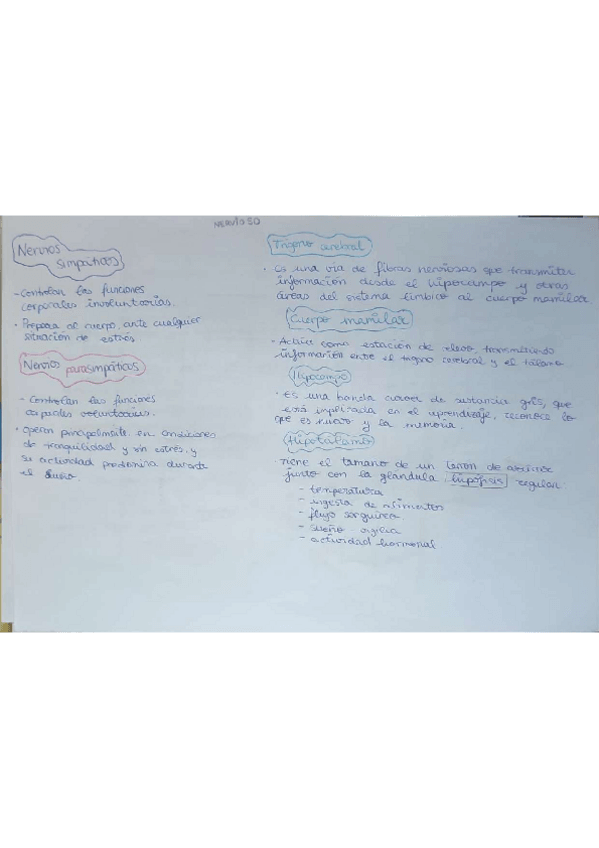 NERVIOSO
Nervios
simpáticos
- Controlan las funciones
corporales involuntarias.
• Prepara al cuerpo ante cualquier
situación de estrés
Nervios parasimpáticos
- Controlan las funciones
corporales voluntarias.
• Operan principalmente en condiciones
de tranquilidad y sin estrés, y
su actividad predomina durante
el sueño
Trigono cerebral
• Es una vía de fibras nerviosas que transmiten
información desde el hipocampo y otras
áreas del sistema límbico al cuerpo mamilar
Cuerpo mamilar
• Actúa como estación de relevo transmitiendo
información entre el trigno cerebral y el tálamo
Hipocampo
• Es una banda de sustancia gris, que
está implicada en el aprendizaje, reconoce lo
que es nuevo y la memoria.
Hipotálamo
Tiene el tamaño de un de azúcar
junto con la glándula hipófisis regulan
- temperatura
- ingesta de alimentos
- flujo sanguíneo
- sueño vigilia
- actividad hormonal